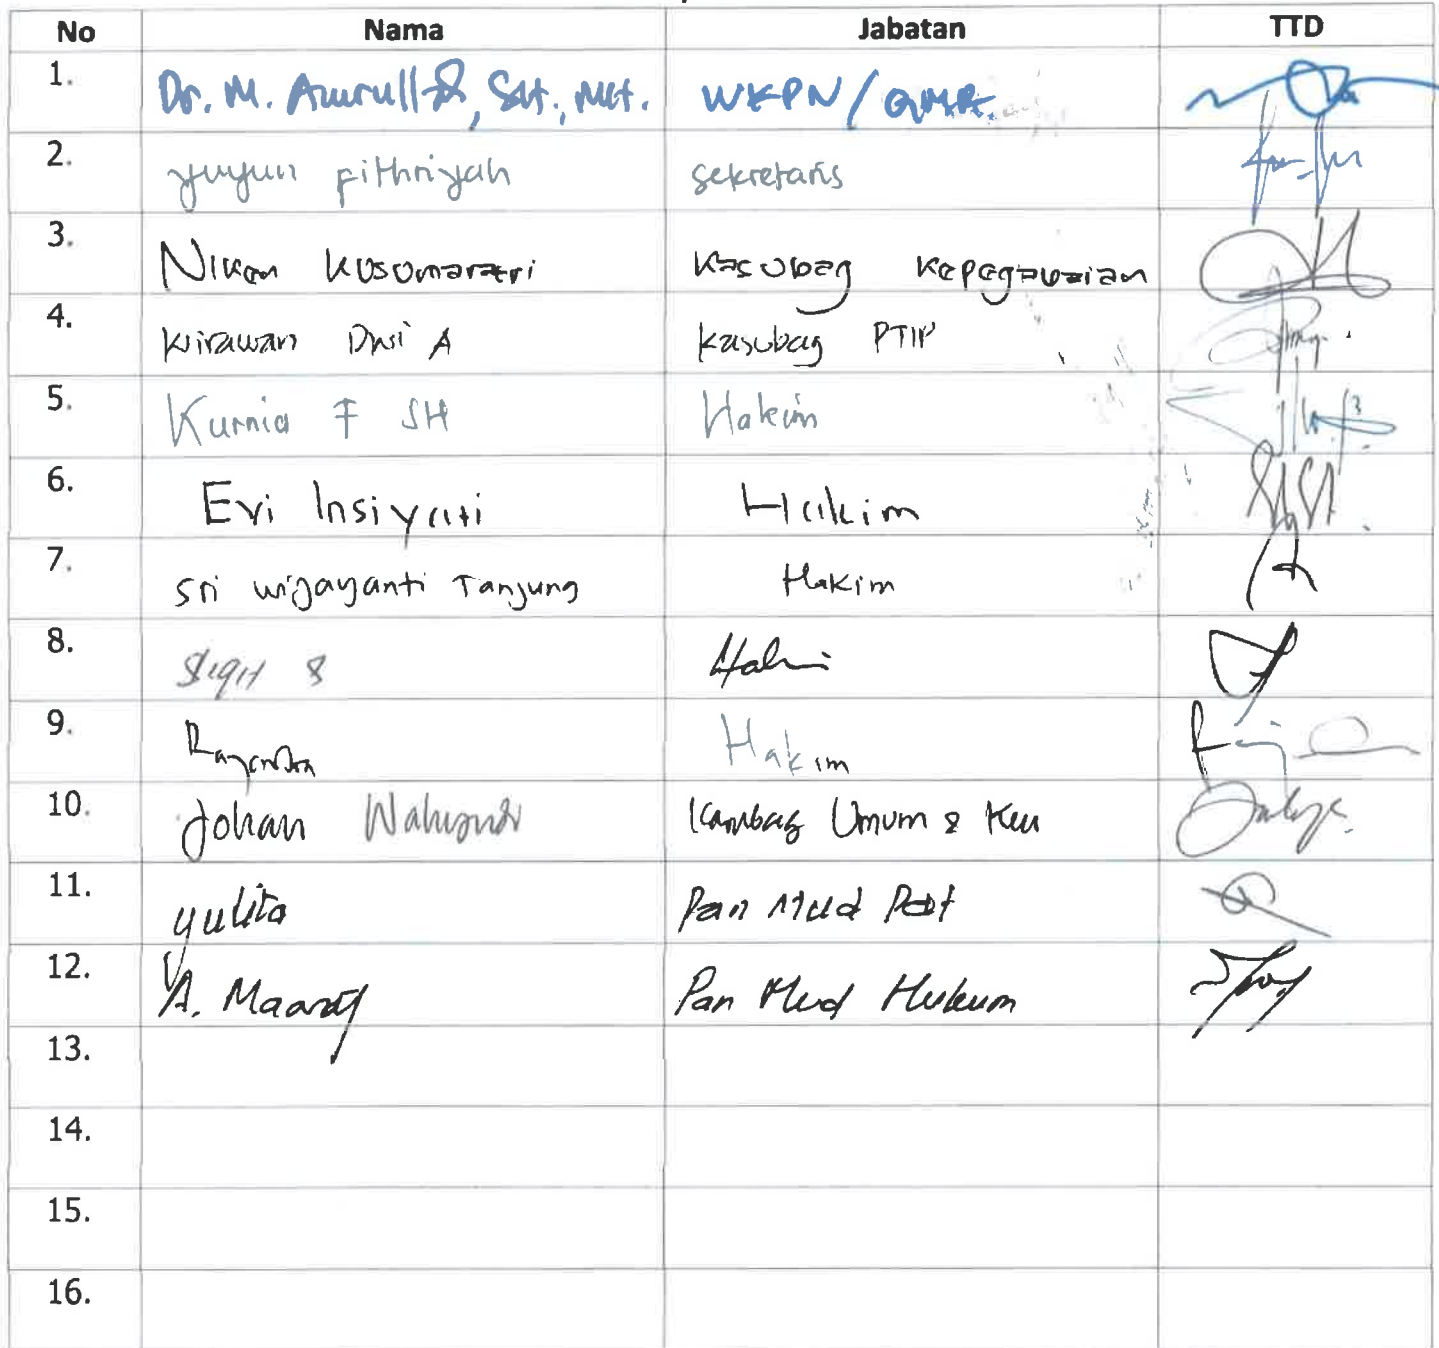 No Nama Jabatan TTD
1. Dr. M. Amrullah, SH., MH. WKPN / QMR
2. yuyun fithriyah sekretaris
3. Niken Kusumaratri Kasubag Kepegawaian
4. Wirawan Dwi A Kasubag PTIP
5. Kurnia F SH Hakim
6. Evi Insiyati Hakim
7. Sri wijayanti Tanjung Hakim
8. Sigit S Hakim
9. Rajendra Hakim
10. Johan Wahyudi Kasubbag Umum & Keu
11. yulita Pan Mud
12. A. Maarif Pan Mud Hukum
13.
14.
15.
16.